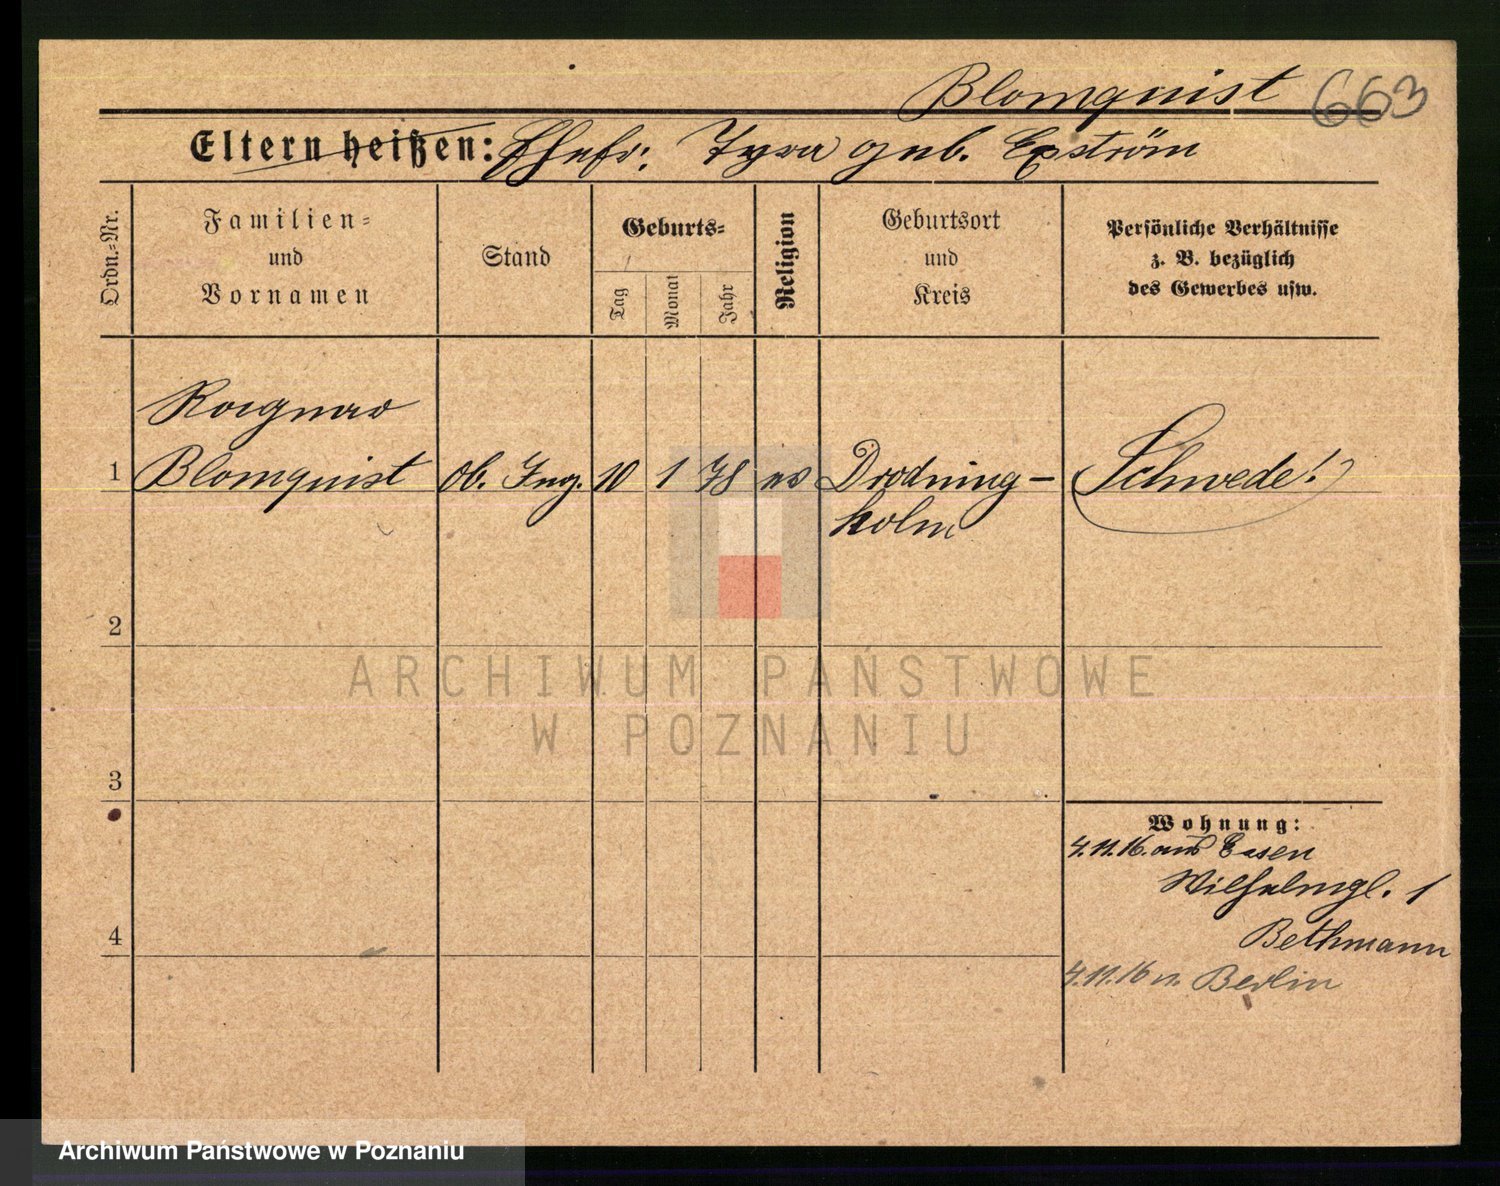 Blomquist 663
Eltern heißen: Ehefr: Tyra geb. Exström
Ordn.-Nr.
Familien-
und
Vornamen
Stand
Geburts-
Tag Monat Jahr
Religion
Geburtsort
und
Kreis
Persönliche Verhältnisse
z. B. bezüglich
des Gewerbes usw.
1
Blomquist Ob. Ing. 10 1 78 ev Drodning-
holm
Schwede!
2
3
4
Wohnung:
4.11.16. aus Essen
Wilhelmpl. 1
Bethmann
4.11.16 n. Berlin
ARCHIWUM PAŃSTWOWE
W POZNANIU
Archiwum Państwowe w Poznaniu